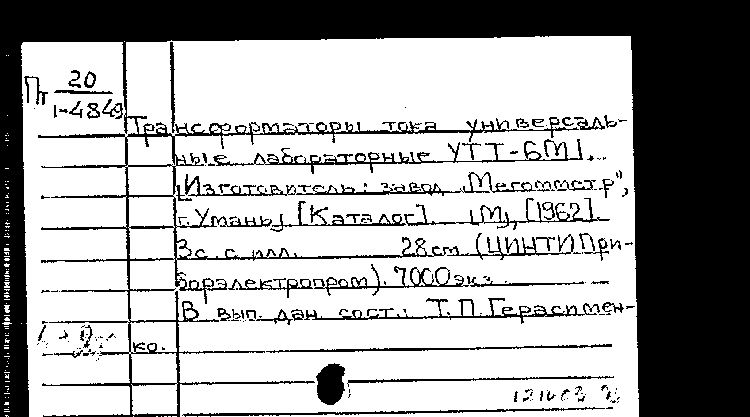 Пт 20
1-4849
Трансформаторы тока универсаль-
ные лабораторные УТТ-6М1.
[Изготовитель: завод „Мегомметр",
г. Умань] [Каталог]. [М], [1962].
3 с. с илл. 28 см (ЦИНТИПри-
борэлектропром). 7000 экз.
В вып. дан. сост.: Т.П. Герасимен-
ко.